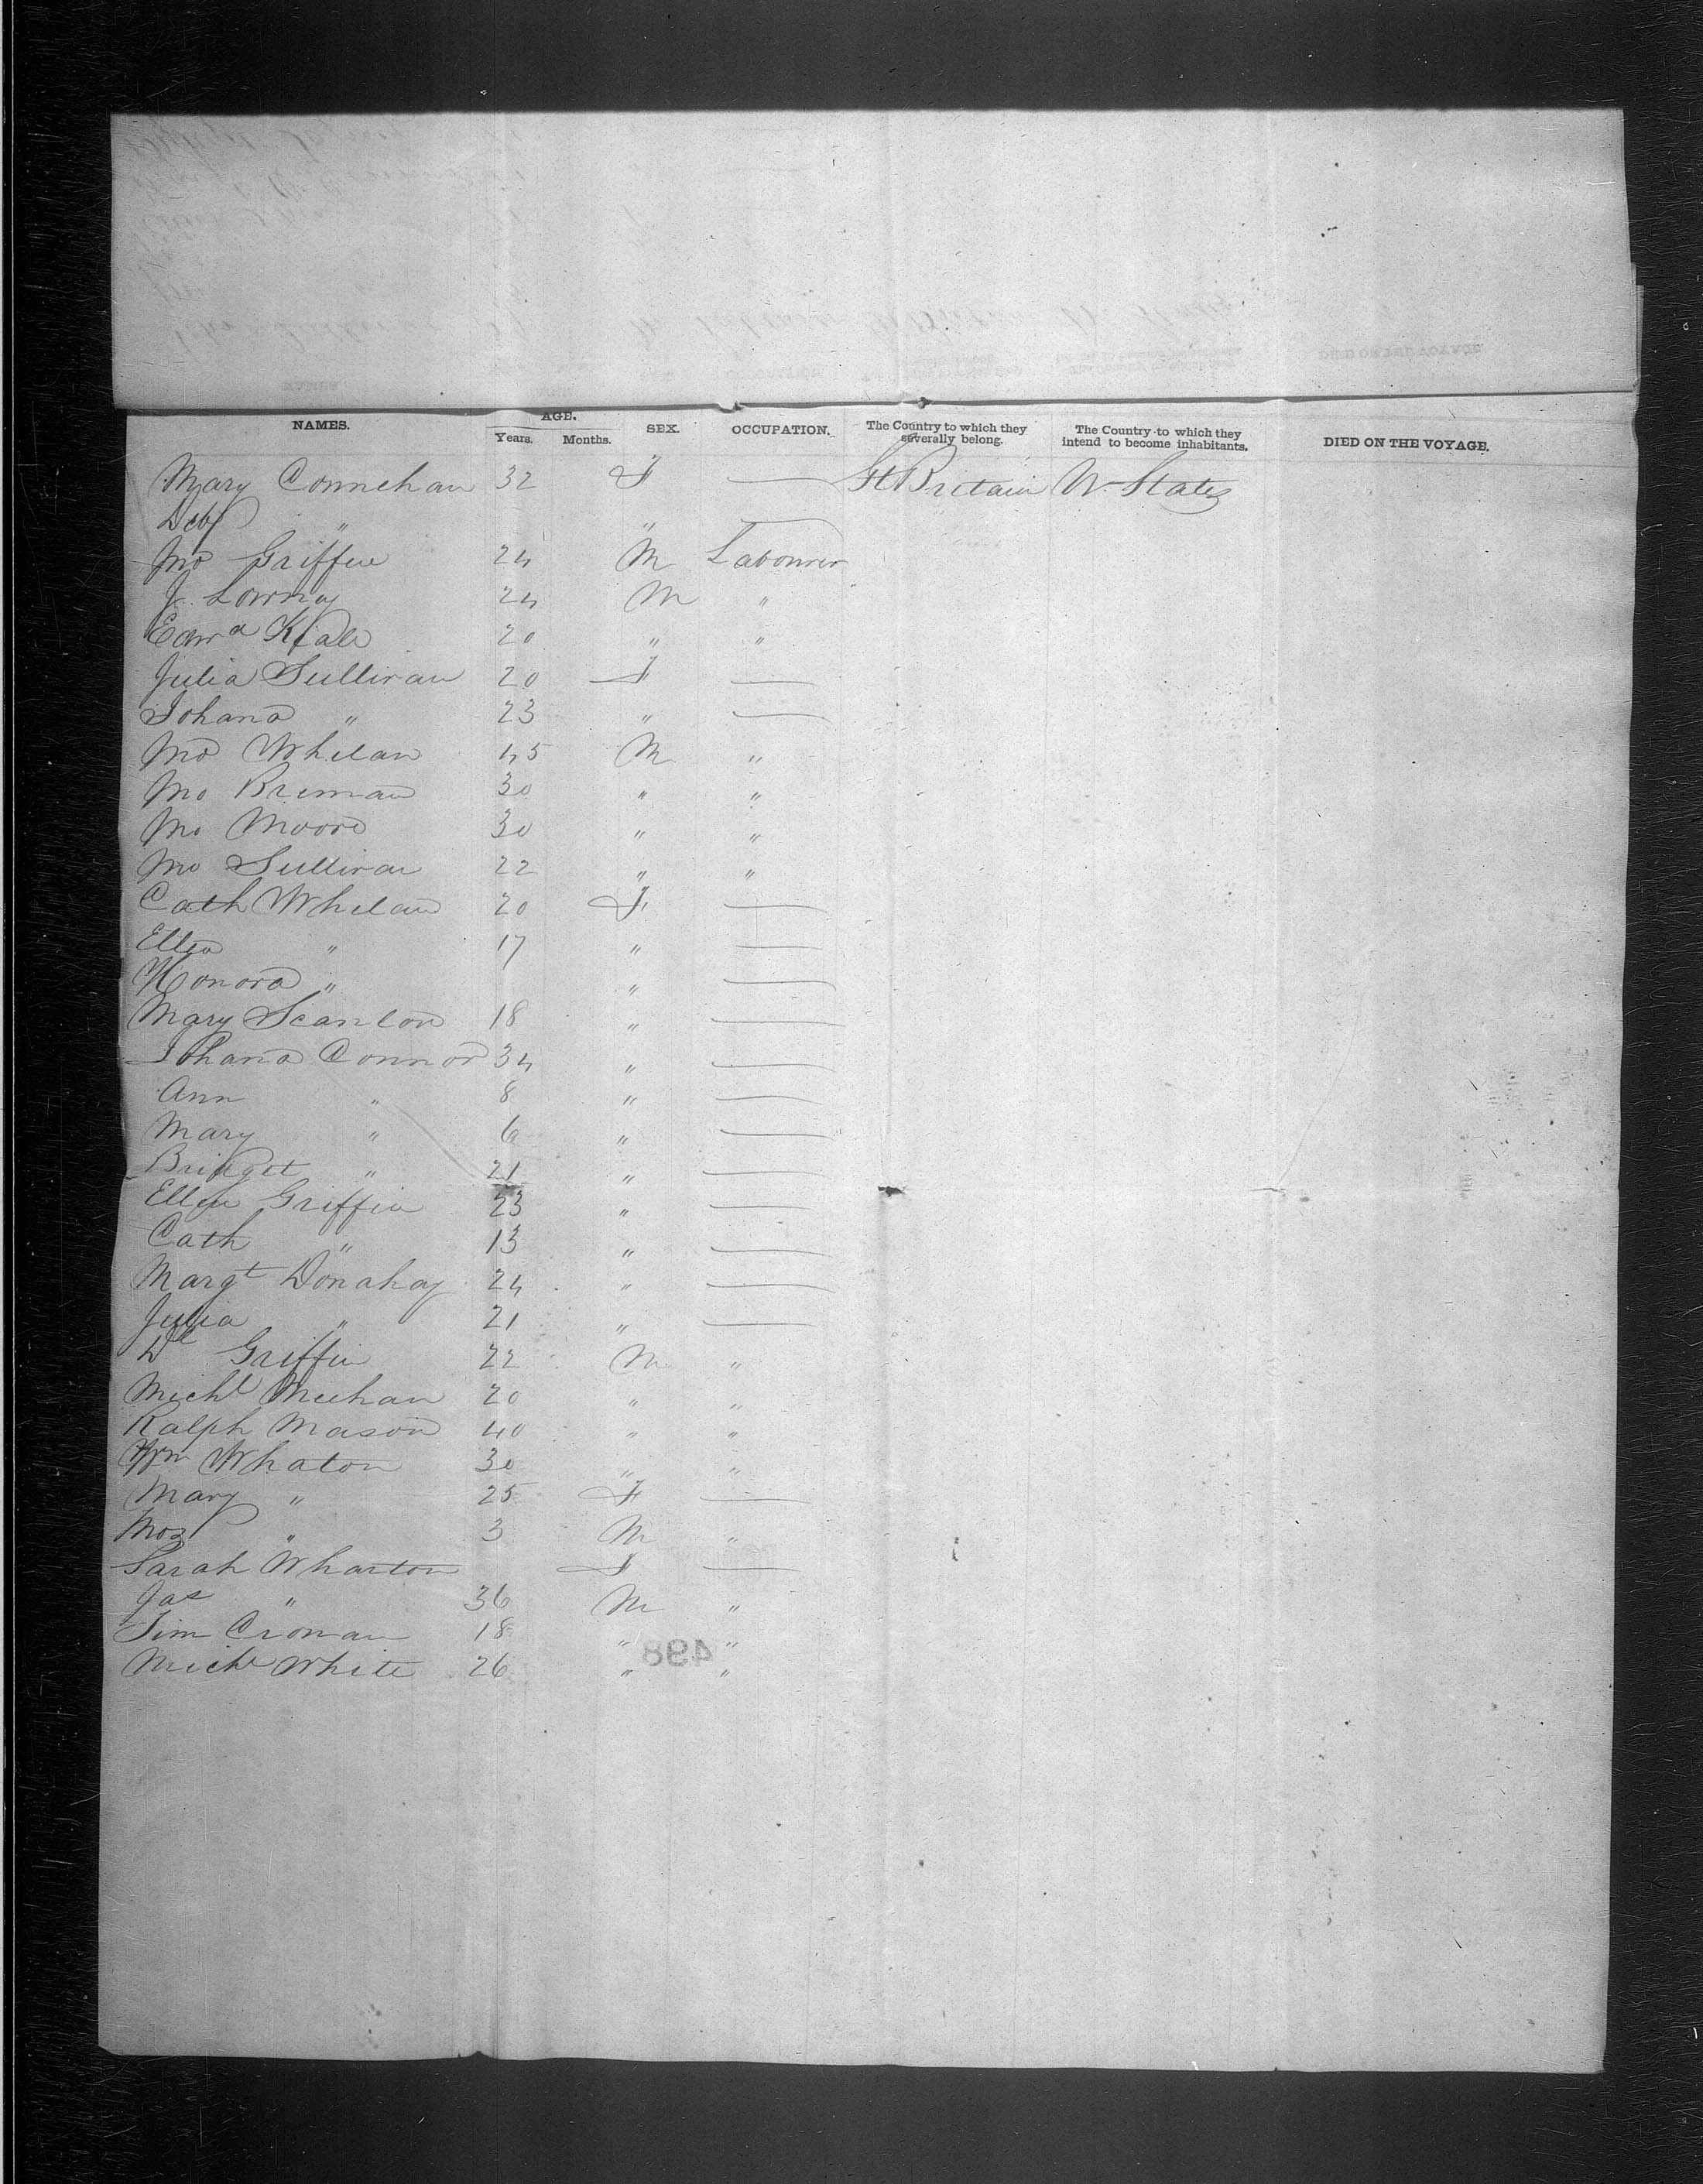 NAMES. AGE. SEX. OCCUPATION. The Country to which they severally belong. The Country to which they intend to become inhabitants. DIED ON THE VOYAGE.
Years. Months.
Mary Connehan 32 F — Gt Britain U. States
" " —
Jno Griffin 24 M Labourer
J. Lowney 24 M "
Edwd 20 " "
Julia Sullivan 20 F —
Johana " 23 " —
Jno Whelan 45 M "
Jno Brenan 30 " "
Jno Moore 30 " "
Jno Sullivan 22 " "
Cath Whelan 20 F —
Ellen " 17 " —
Honora " " —
Mary Scanlon 18 " —
Johana Connor 34 " —
Ann " 8 " —
Mary " 6 " —
Bridget " 21 " —
Ellen Griffin 23 " —
Cath " 13 " —
Margt Donahoy 24 " —
Julia " 21 " —
Dl Griffin 22 M "
Michl Meehan 20 " "
Ralph Mason 40 " "
Wm Whaton 30 " "
Mary " 25 F —
" 3 M "
Sarah Wharton F —
Jas " 36 M "
Tim Cronan 18 " "
Michl White 26 " "
498